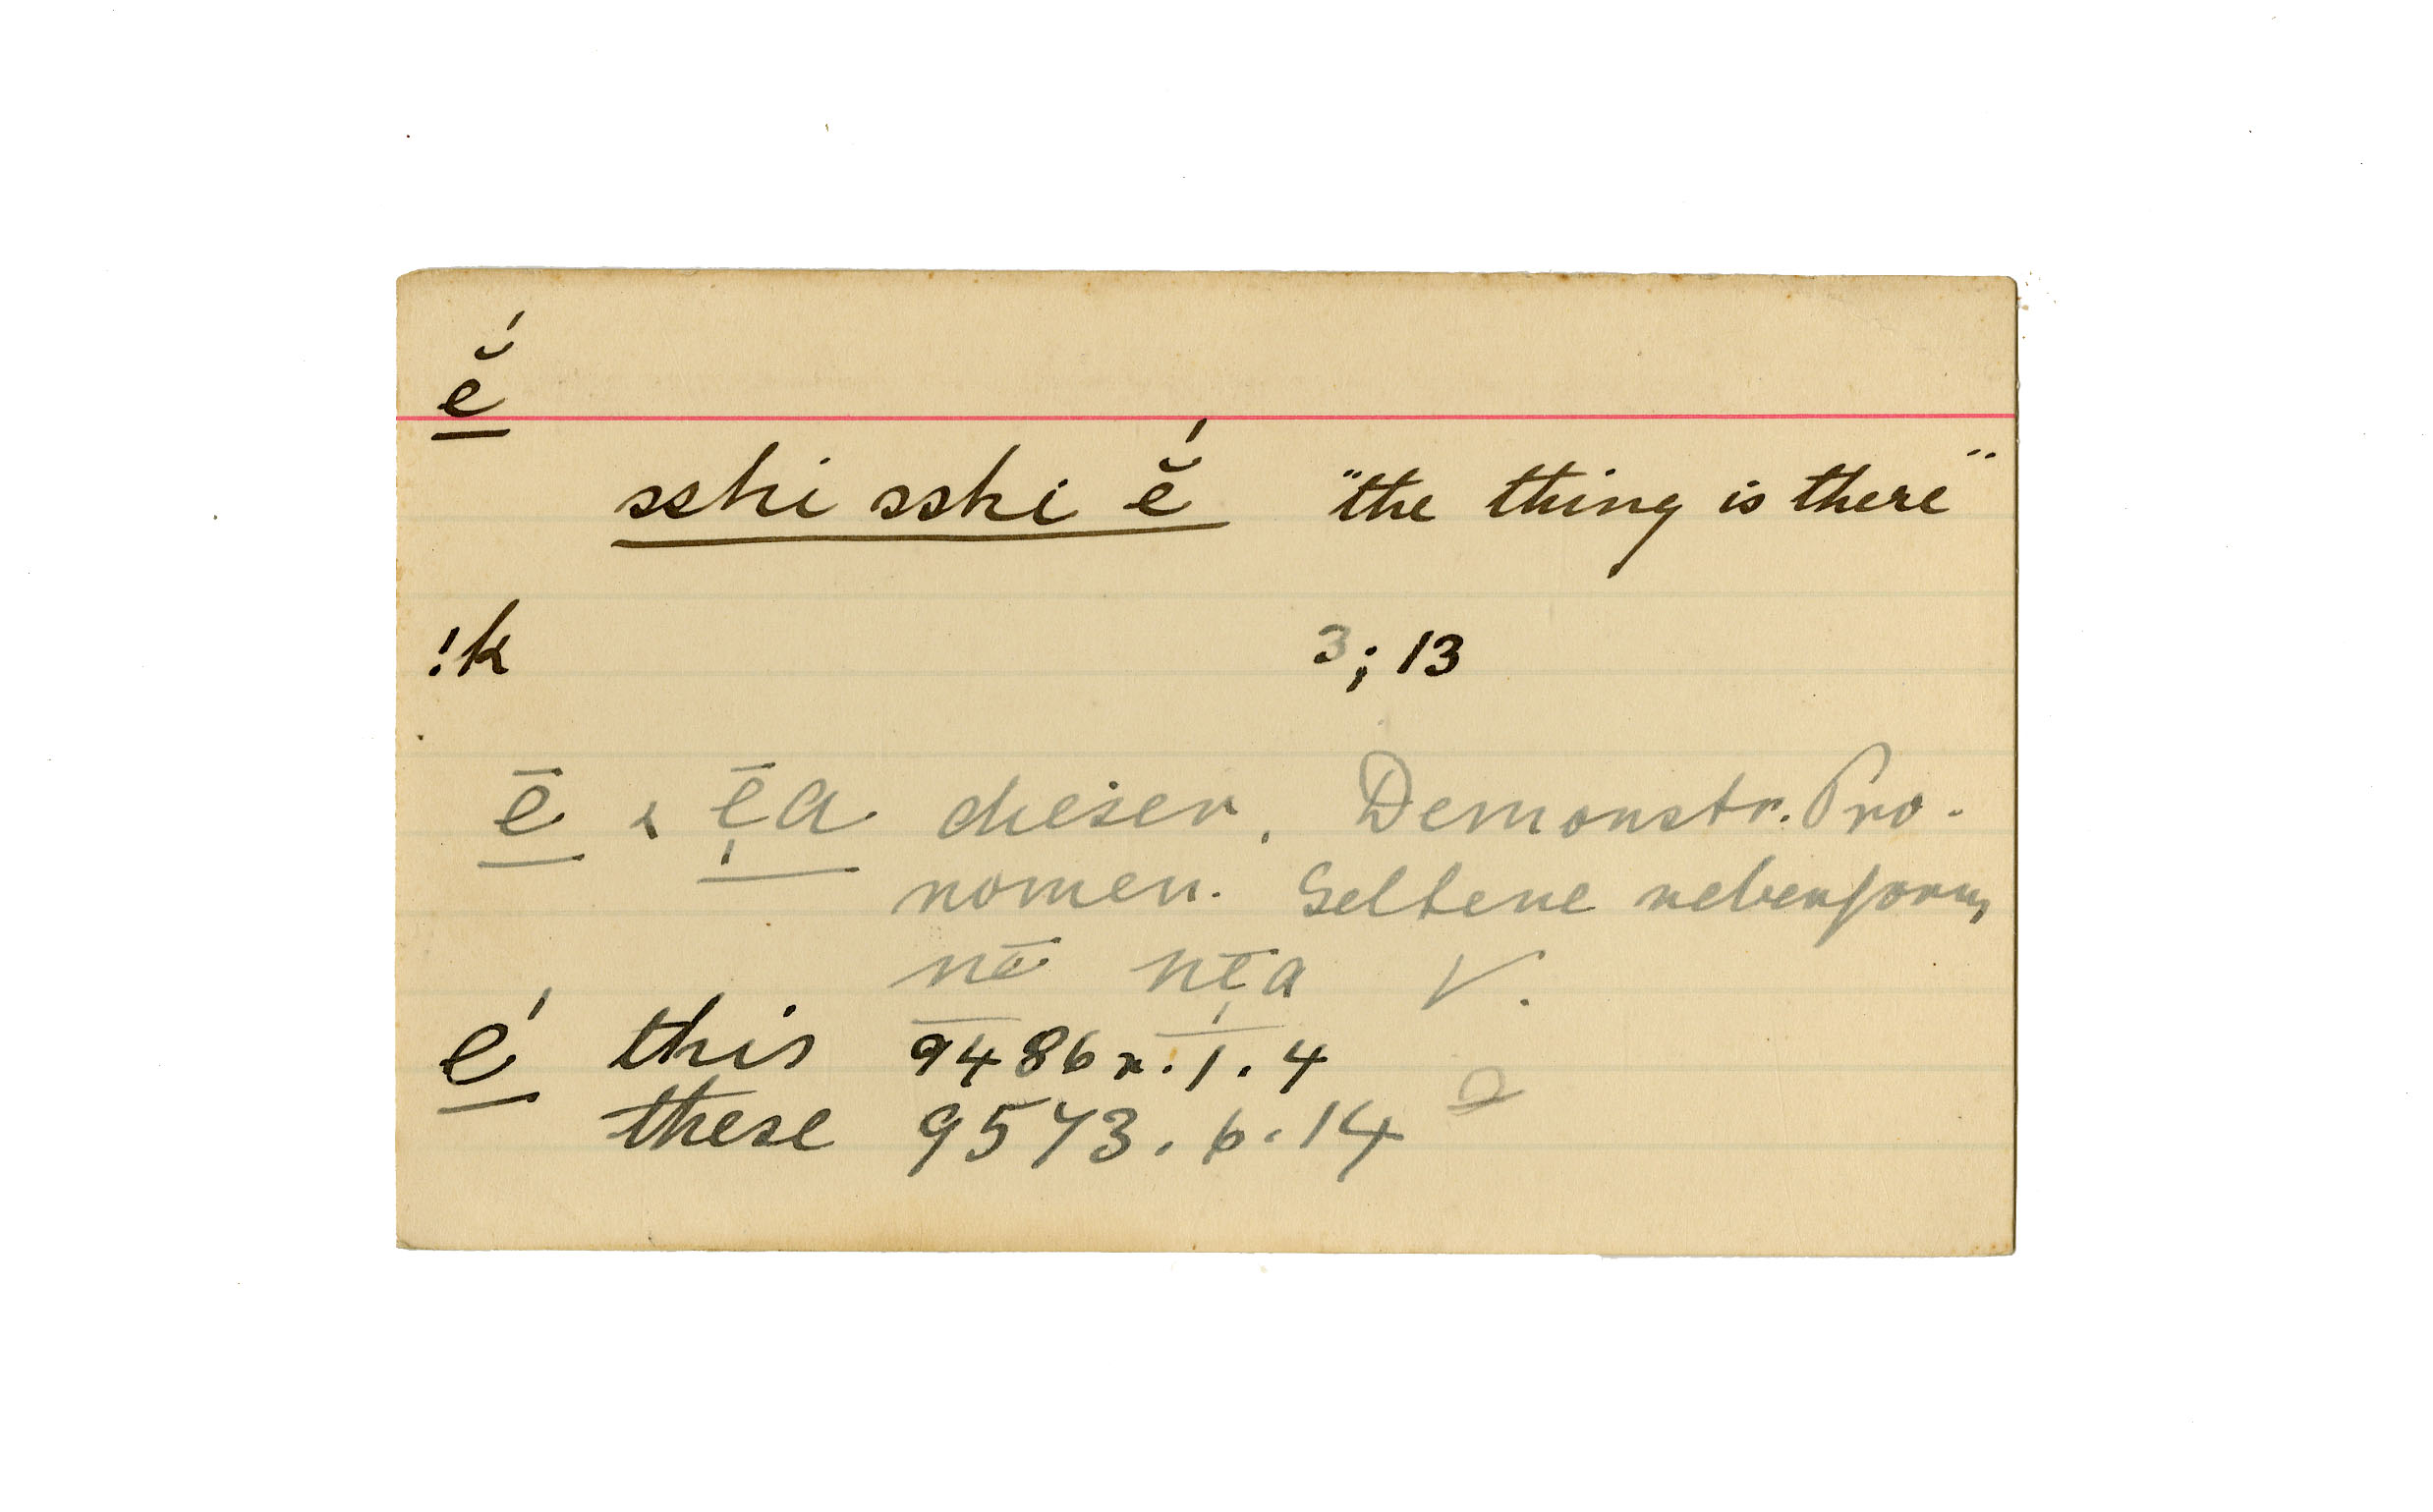 ĕ́
sshi sshi ĕ́ "the thing is there"
!k 3; 13
ē & ē̩a dieser. Demonstr. Pro-
nomen. Seltene nebenform
nē nē̩a V.
é this 9486 r. 1. 4
these 9573. 6. 14